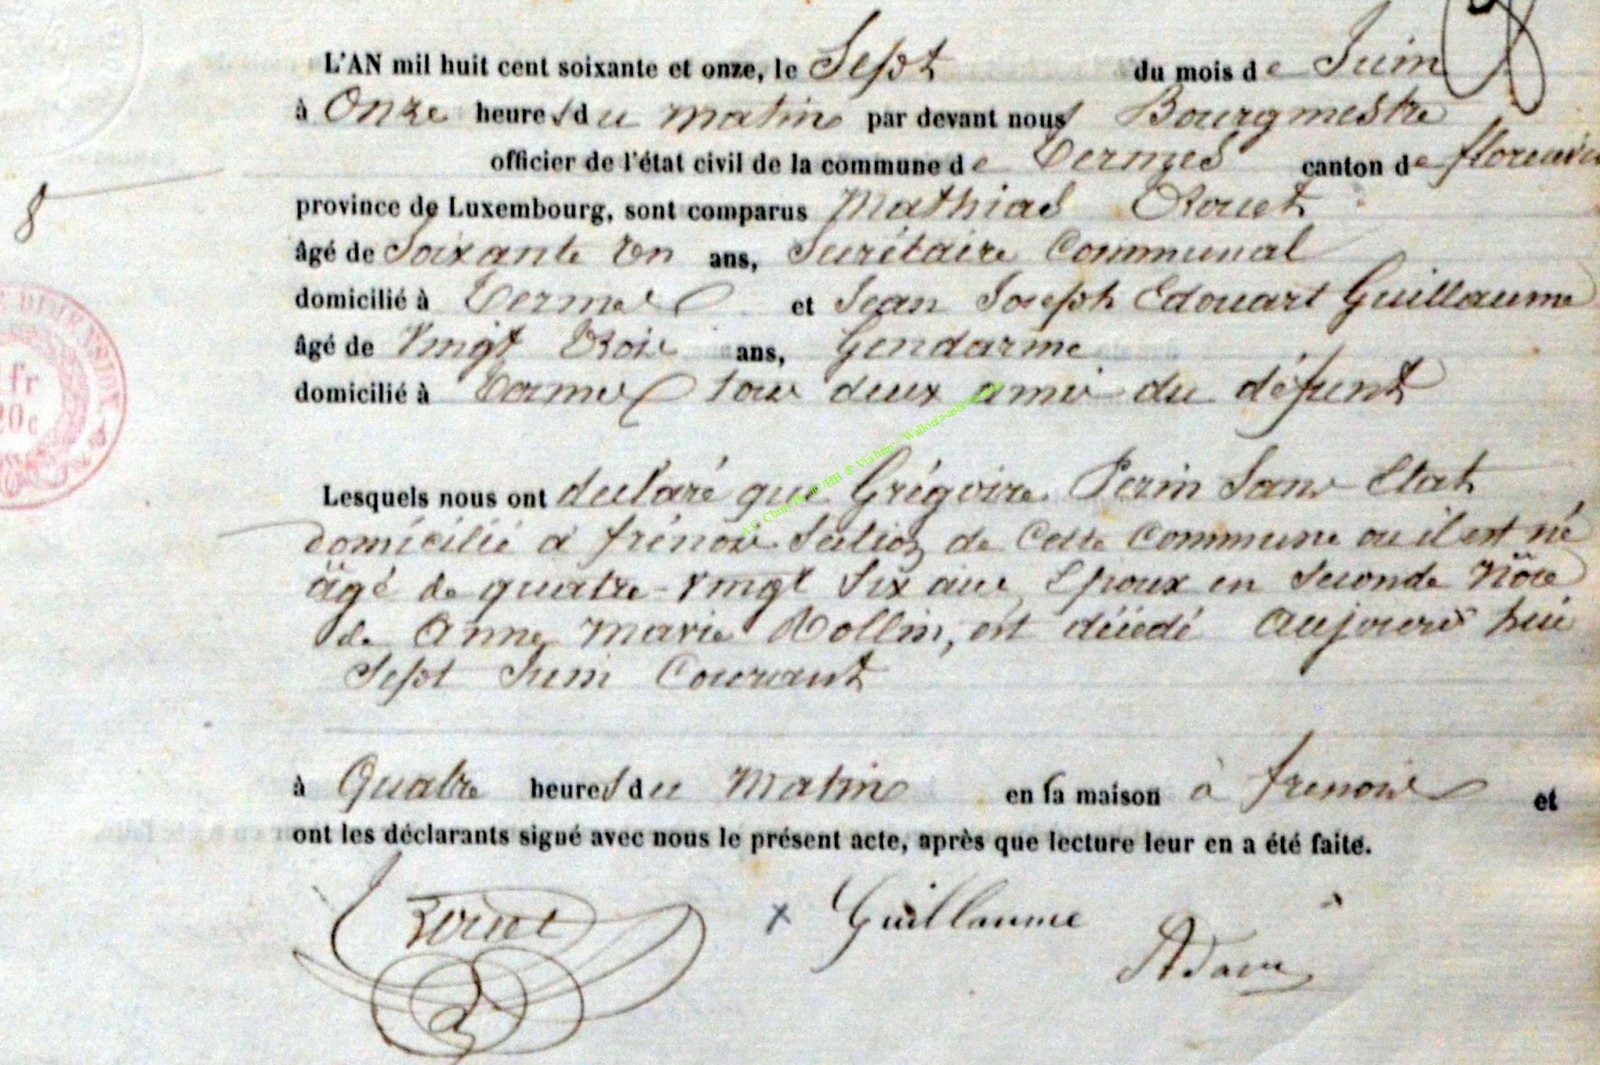 L'AN mil huit cent soixante et onze, le Sept du mois de Juin
à Onze heures du matin par devant nous Bourgmestre
officier de l'état civil de la commune de Termes canton de florenvi
8
province de Luxembourg, sont comparus Mathias Rouet
âgé de Soixante en ans, Secrétaire Communal
domicilié à Termes et Jean Joseph Edouart Guillaume
âgé de Vingt trois ans, Gendarme
domicilié à Termes tous deux amis du défunt
fr
20c
Lesquels nous ont declaré que Grégoire Perin Sans Etat
domicilié à frénois Section de Cette Commune ou il est né
âgé de quatre-Vingt Six ans, Epoux en Seconde Nôce
de Anne Marie Rollin, est décédé aujourd'hui
Sept Juin Courant
à Quatre heures du Matin en sa maison à frenois et
ont les déclarants signé avec nous le présent acte, après que lecture leur en a été faite.
Rouet x Guillaume
Adam